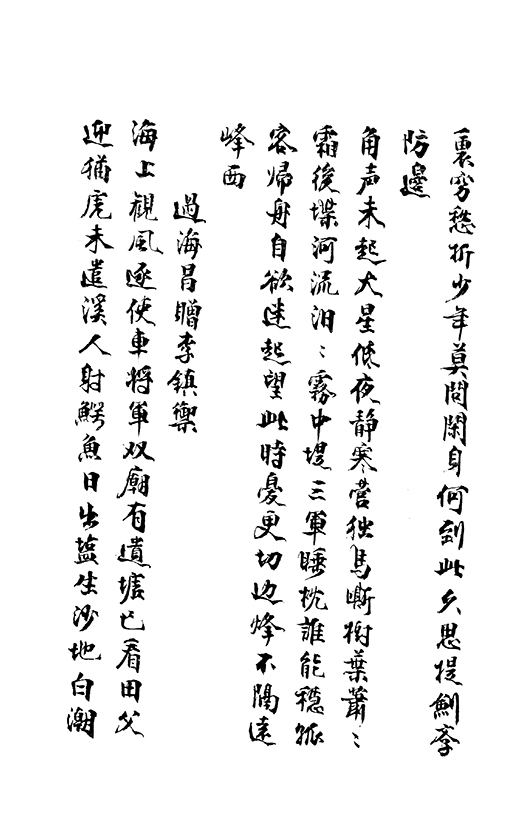 裏窮愁折少年莫問閑身何到此久思提劍學
防邊
角声未起大星低夜静寒营独馬嘶樹葉蕭〻
霜後堞河流汩〻霧中堤三軍睡枕誰能穏孤
客帰舟自欲迷起望此時憂更切边烽不隔遠
峰西
過海昌贈李鎮禦
海上觀風逐使車將軍双廟有遺墟已看田父
迎猫虎未遣溪人射鰐魚日出塩生沙地白潮